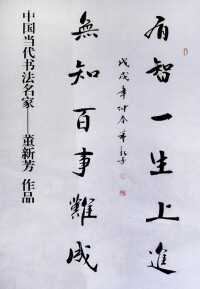 有智一生上進
無知百事難成
戊戌年仲春董新芳
中国当代书法名家——董新芳 作品